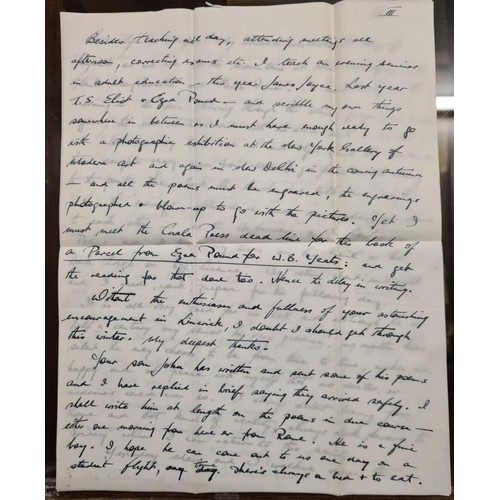 III
Besides teaching all day, attending meetings all
afternoon, correcting exams etc. I teach an evening seminar
in adult education — this year James Joyce. Last year
T.S. Eliot & Ezra Pound — and scribble my own things
somewhere in between as I must have enough ready to go
with a photographic exhibition at the New York Gallery of
Modern Art and again in New Delhi in the coming autumn
— and all the poems must be engraved, the engravings
photographed & blown-up to go with the pictures. Yet I
must meet the Cuala Press dead line for this book of
a Parcel from Ezra Pound for W.B. Yeats: and get
the reading for that done too. Hence the delay in writing.
Without the enthusiasm and fullness of your astonishing
encouragement in Limerick, I doubt I should get through
this winter. My deepest thanks.
Your son John has written and sent some of his poems
and I have replied in brief saying they arrived safely. I
shall write him at length on the poems in due course —
either one morning from here or from Rome. He is a fine
boy. I hope he can come out to us one day on a
student flight, any day. There's always a bed & to eat.